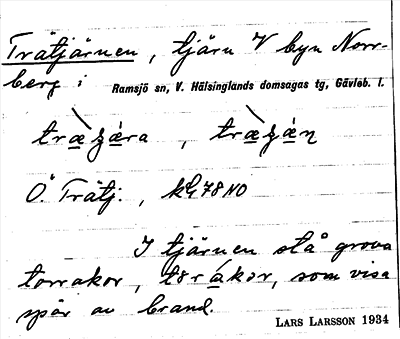 Trätjärnen, tjärn V byn Norr-
berg i Ramsjö sn, V. Hälsinglands domsagas tg, Gävleb. l.
Ö. Trätj.,
I tjärnen stå grova
torrakor, torákor, som visa
spår av brand.
LARS LARSSON 1934